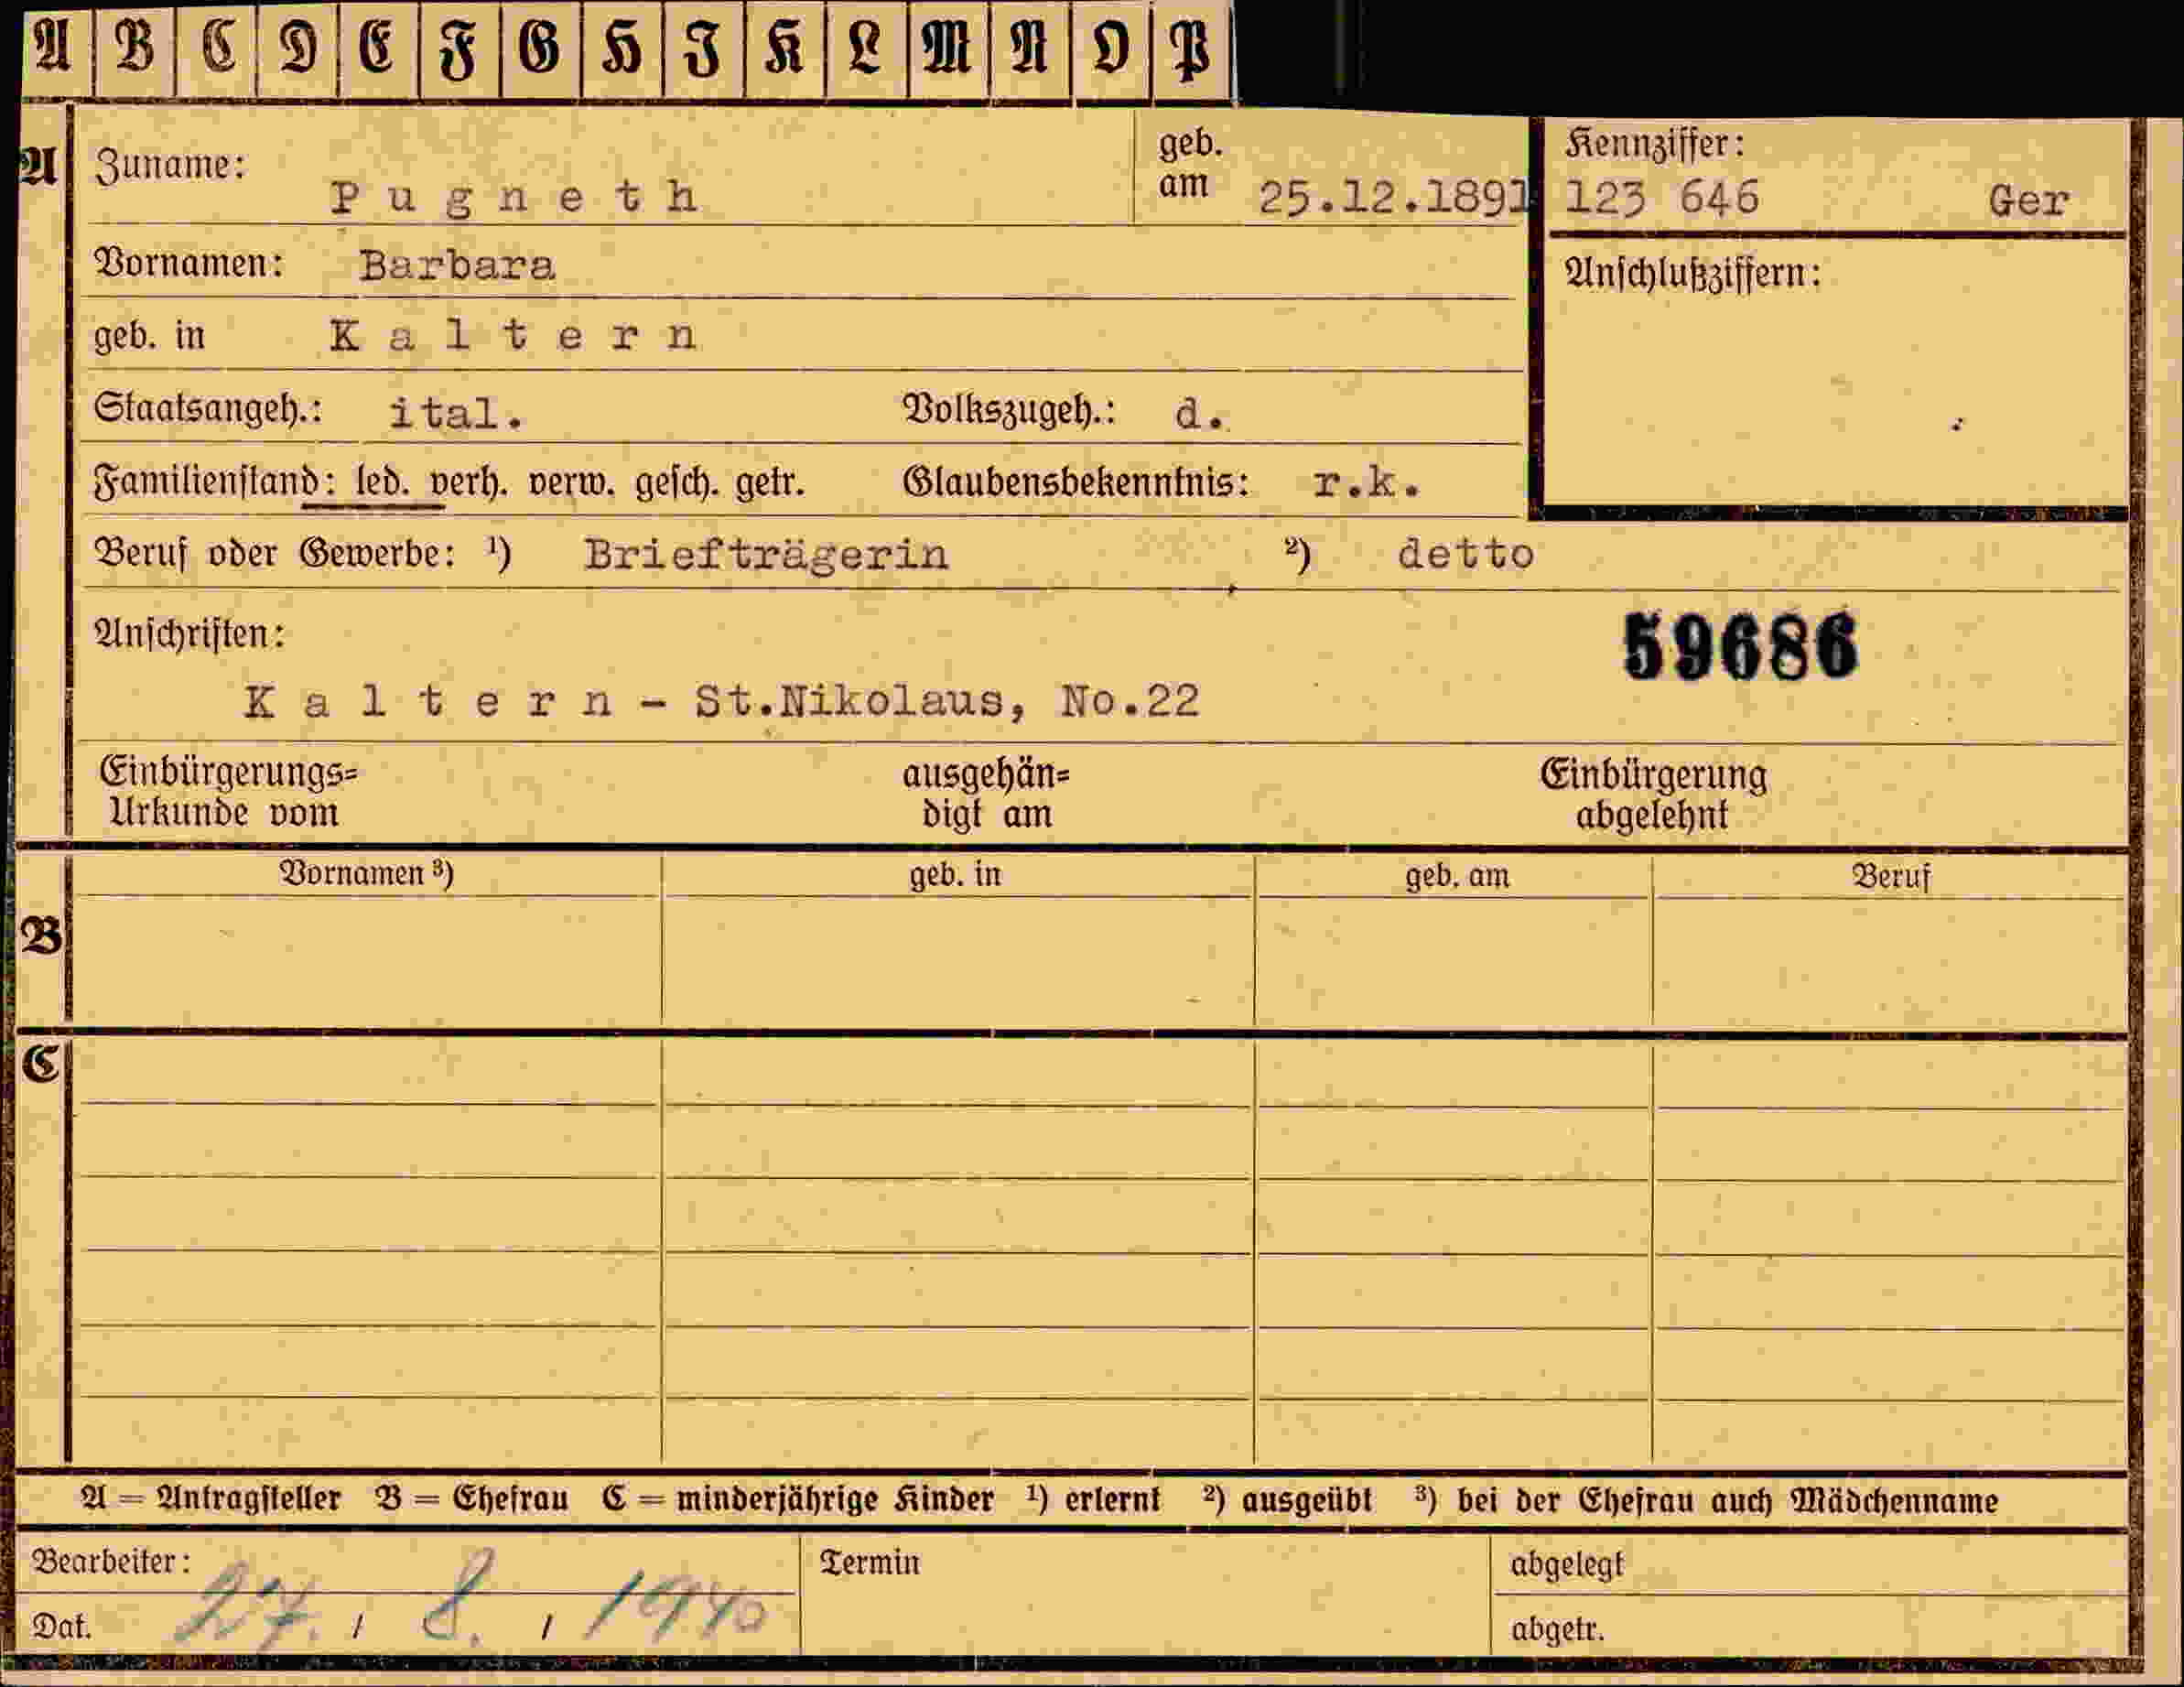 A B C D E F G H I K L M N O P
A Zuname: Pugneth geb. am 25.12.1891 Kennziffer: 123 646 Ger
Vornamen: Barbara Anschlußziffern:
geb. in Kaltern
Staatsangeh.: ital. Volkszugeh.: d.
Familienstand: led. verh. verw. gesch. getr. Glaubensbekenntnis: r.k.
Beruf oder Gewerbe: ¹) Briefträgerin ²) detto
Anschriften: 59686
Kaltern - St.Nikolaus, No.22
Einbürgerungs= ausgehän= Einbürgerung
Urkunde vom digt am abgelehnt
Vornamen ³) geb. in geb. am Beruf
B
C
A = Antragsteller B = Ehefrau C = minderjährige Kinder ¹) erlernt ²) ausgeübt ³) bei der Ehefrau auch Mädchenname
Bearbeiter: Termin abgelegt
Dat. 27. / 8. / 1940 abgetr.